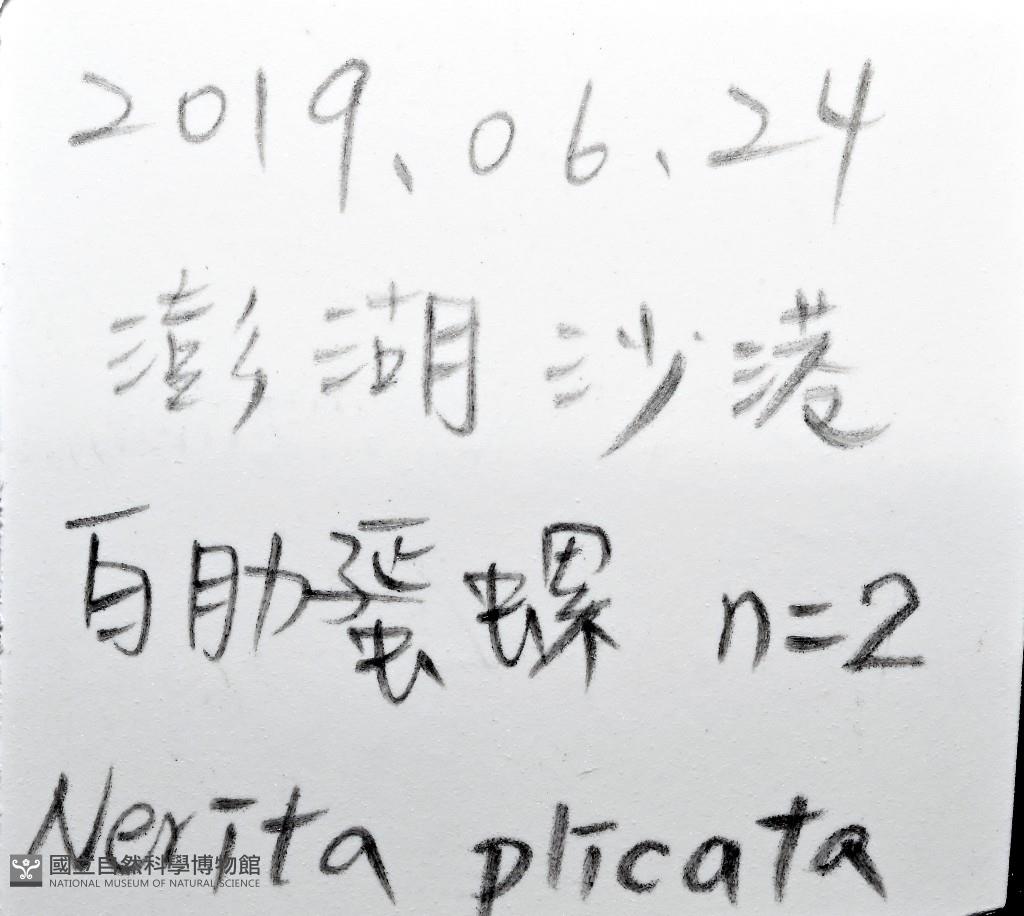 2019、06、24
澎湖沙港
百肋蜑螺 n=2
Nerita plicata
國立自然科學博物館
NATIONAL MUSEUM OF NATURAL SCIENCE